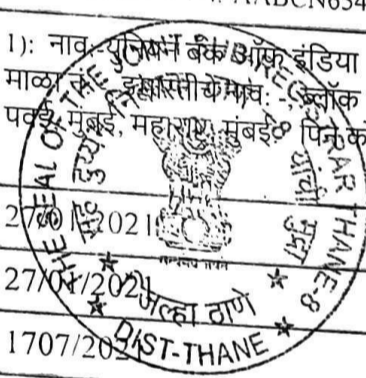 AABCN654
1): नाव:-युनियन बँक ऑफ इंडिया
माळा नं: इमारतीचे नाव: ब्लॉक
पवई, मुंबई, महाराष्ट्र, मुंबई. पिन को
27/01/2021
27/01/2021
1707/2021
THE SEAL OF THE JOINT SUB REGISTRAR THANE-8
सह दुय्यम
यांची मुद्रा
जिल्हा ठाणे
DIST-THANE